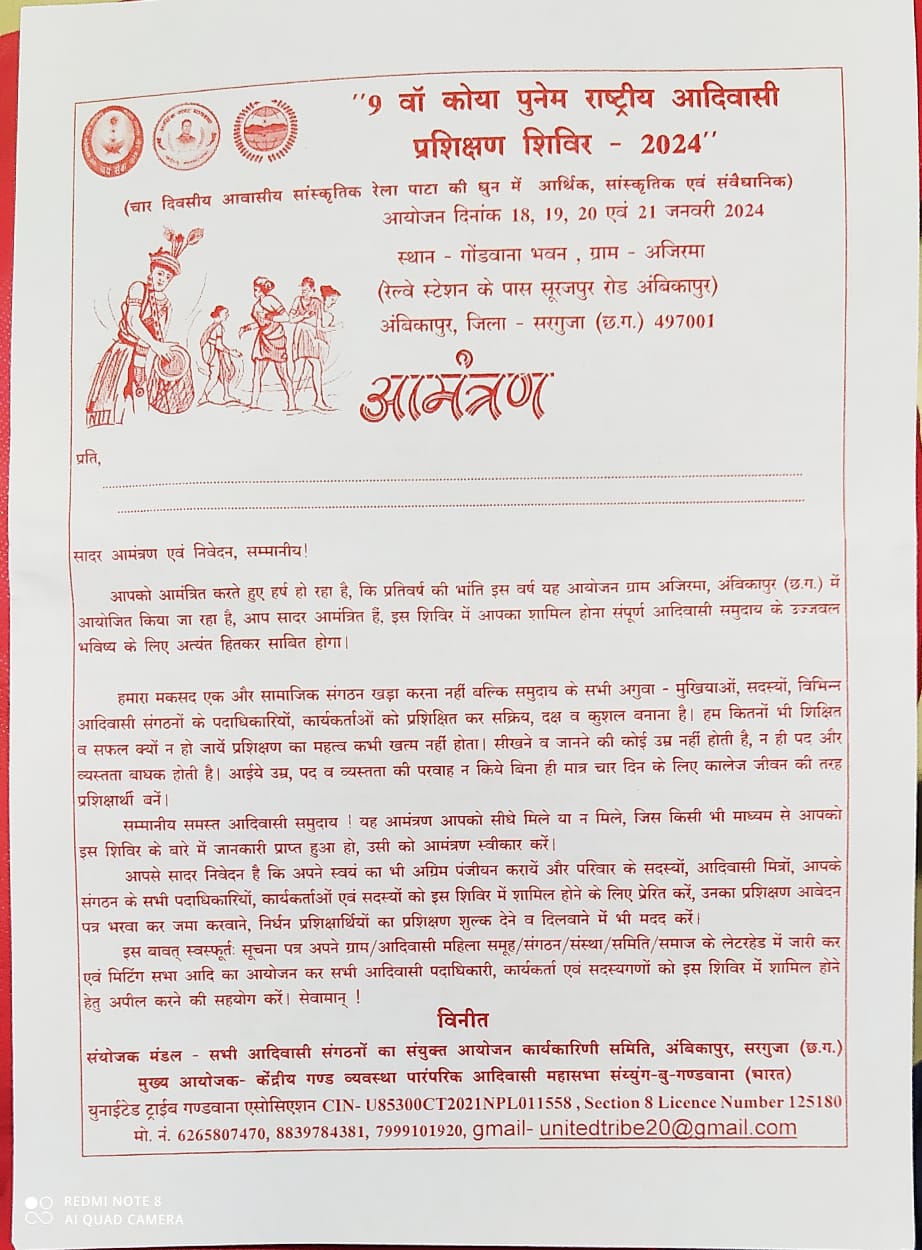 "9 वॉ कोया पुनेम राष्ट्रीय आदिवासी
प्रशिक्षण शिविर - 2024"
(चार दिवसीय आवासीय सांस्कृतिक रेला पाटा की धुन में आर्थिक, सांस्कृतिक एवं संवैधानिक)
आयोजन दिनांक 18, 19, 20 एवं 21 जनवरी 2024
स्थान - गोंडवाना भवन , ग्राम - अजिरमा
(रेल्वे स्टेशन के पास सूरजपुर रोड अंबिकापुर)
अंबिकापुर, जिला - सरगुजा (छ.ग.) 497001
आमंत्रण
प्रति,
सादर आमंत्रण एवं निवेदन, सम्मानीय!
आपको आमंत्रित करते हुए हर्ष हो रहा है, कि प्रतिवर्ष की भांति इस वर्ष यह आयोजन ग्राम अजिरमा, अंबिकापुर (छ.ग.) में
आयोजित किया जा रहा है, आप सादर आमंत्रित हैं, इस शिविर में आपका शामिल होना संपूर्ण आदिवासी समुदाय के उज्जवल
भविष्य के लिए अत्यंत हितकर साबित होगा।
हमारा मकसद एक और सामाजिक संगठन खड़ा करना नहीं बल्कि समुदाय के सभी अगुवा - मुखियाओं, सदस्यों, विभिन्न
आदिवासी संगठनों के पदाधिकारियों, कार्यकर्ताओं को प्रशिक्षित कर सक्रिय, दक्ष व कुशल बनाना है। हम कितनों भी शिक्षित
व सफल क्यों न हो जायें प्रशिक्षण का महत्व कभी खत्म नहीं होता। सीखने व जानने की कोई उम्र नहीं होती है, न ही पद और
व्यस्तता बाधक होती है। आईये उम्र, पद व व्यस्तता की परवाह न किये बिना ही मात्र चार दिन के लिए कालेज जीवन की तरह
प्रशिक्षार्थी बनें।
सम्मानीय समस्त आदिवासी समुदाय ! यह आमंत्रण आपको सीधे मिले या न मिले, जिस किसी भी माध्यम से आपको
इस शिविर के बारे में जानकारी प्राप्त हुआ हो, उसी को आमंत्रण स्वीकार करें।
आपसे सादर निवेदन है कि अपने स्वयं का भी अग्रिम पंजीयन करायें और परिवार के सदस्यों, आदिवासी मित्रों, आपके
संगठन के सभी पदाधिकारियों, कार्यकर्ताओं एवं सदस्यों को इस शिविर में शामिल होने के लिए प्रेरित करें, उनका प्रशिक्षण आवेदन
पत्र भरवा कर जमा करवाने, निर्धन प्रशिक्षार्थियों का प्रशिक्षण शुल्क देने व दिलवाने में भी मदद करें।
इस बावत् स्वस्फूर्तः सूचना पत्र अपने ग्राम/आदिवासी महिला समूह/संगठन/संस्था/समिति/समाज के लेटरहेड में जारी कर
एवं मिटिंग सभा आदि का आयोजन कर सभी आदिवासी पदाधिकारी, कार्यकर्ता एवं सदस्यगणों को इस शिविर में शामिल होने
हेतु अपील करने की सहयोग करें। सेवामान् !
विनीत
संयोजक मंडल - सभी आदिवासी संगठनों का संयुक्त आयोजन कार्यकारिणी समिति, अंबिकापुर, सरगुजा (छ.ग.)
मुख्य आयोजक- केंद्रीय गण्ड व्यवस्था पारंपरिक आदिवासी महासभा संय्युंग-बु-गण्डवाना (भारत)
युनाईटेड ट्राईब गण्डवाना एसोसिएशन CIN- U85300CT2021NPL011558 , Section 8 Licence Number 125180
मो. नं. 6265807470, 8839784381, 7999101920, gmail- unitedtribe20@gmail.com
REDMI NOTE 8
AI QUAD CAMERA